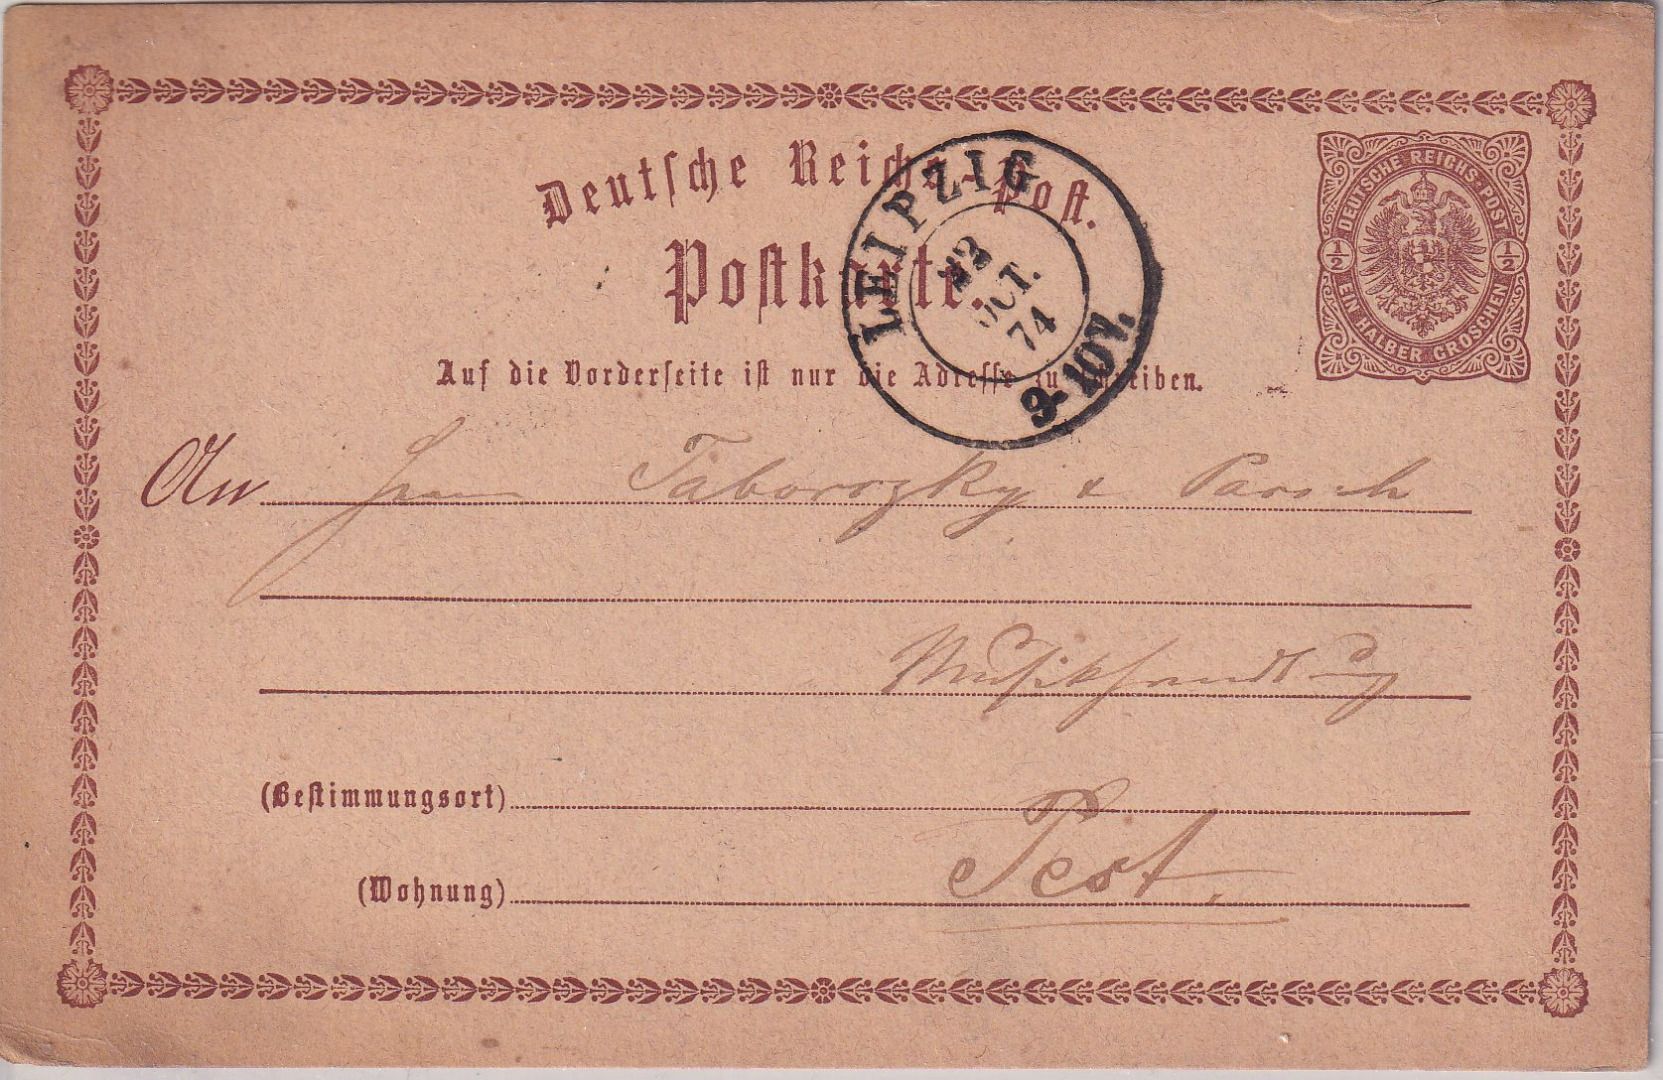 Deutsche Reichs-Post.
Postkarte.
Auf die Vorderseite ist nur die Adresse zu schreiben.
DEUTSCHE REICHS-POST
1/2 1/2
EIN HALBER GROSCHEN
LEIPZIG
OCT.
74
9-10V.
An Herrn Táborszky & Parsch
Musikhandlung
(Bestimmungsort)
Pest.
(Wohnung)